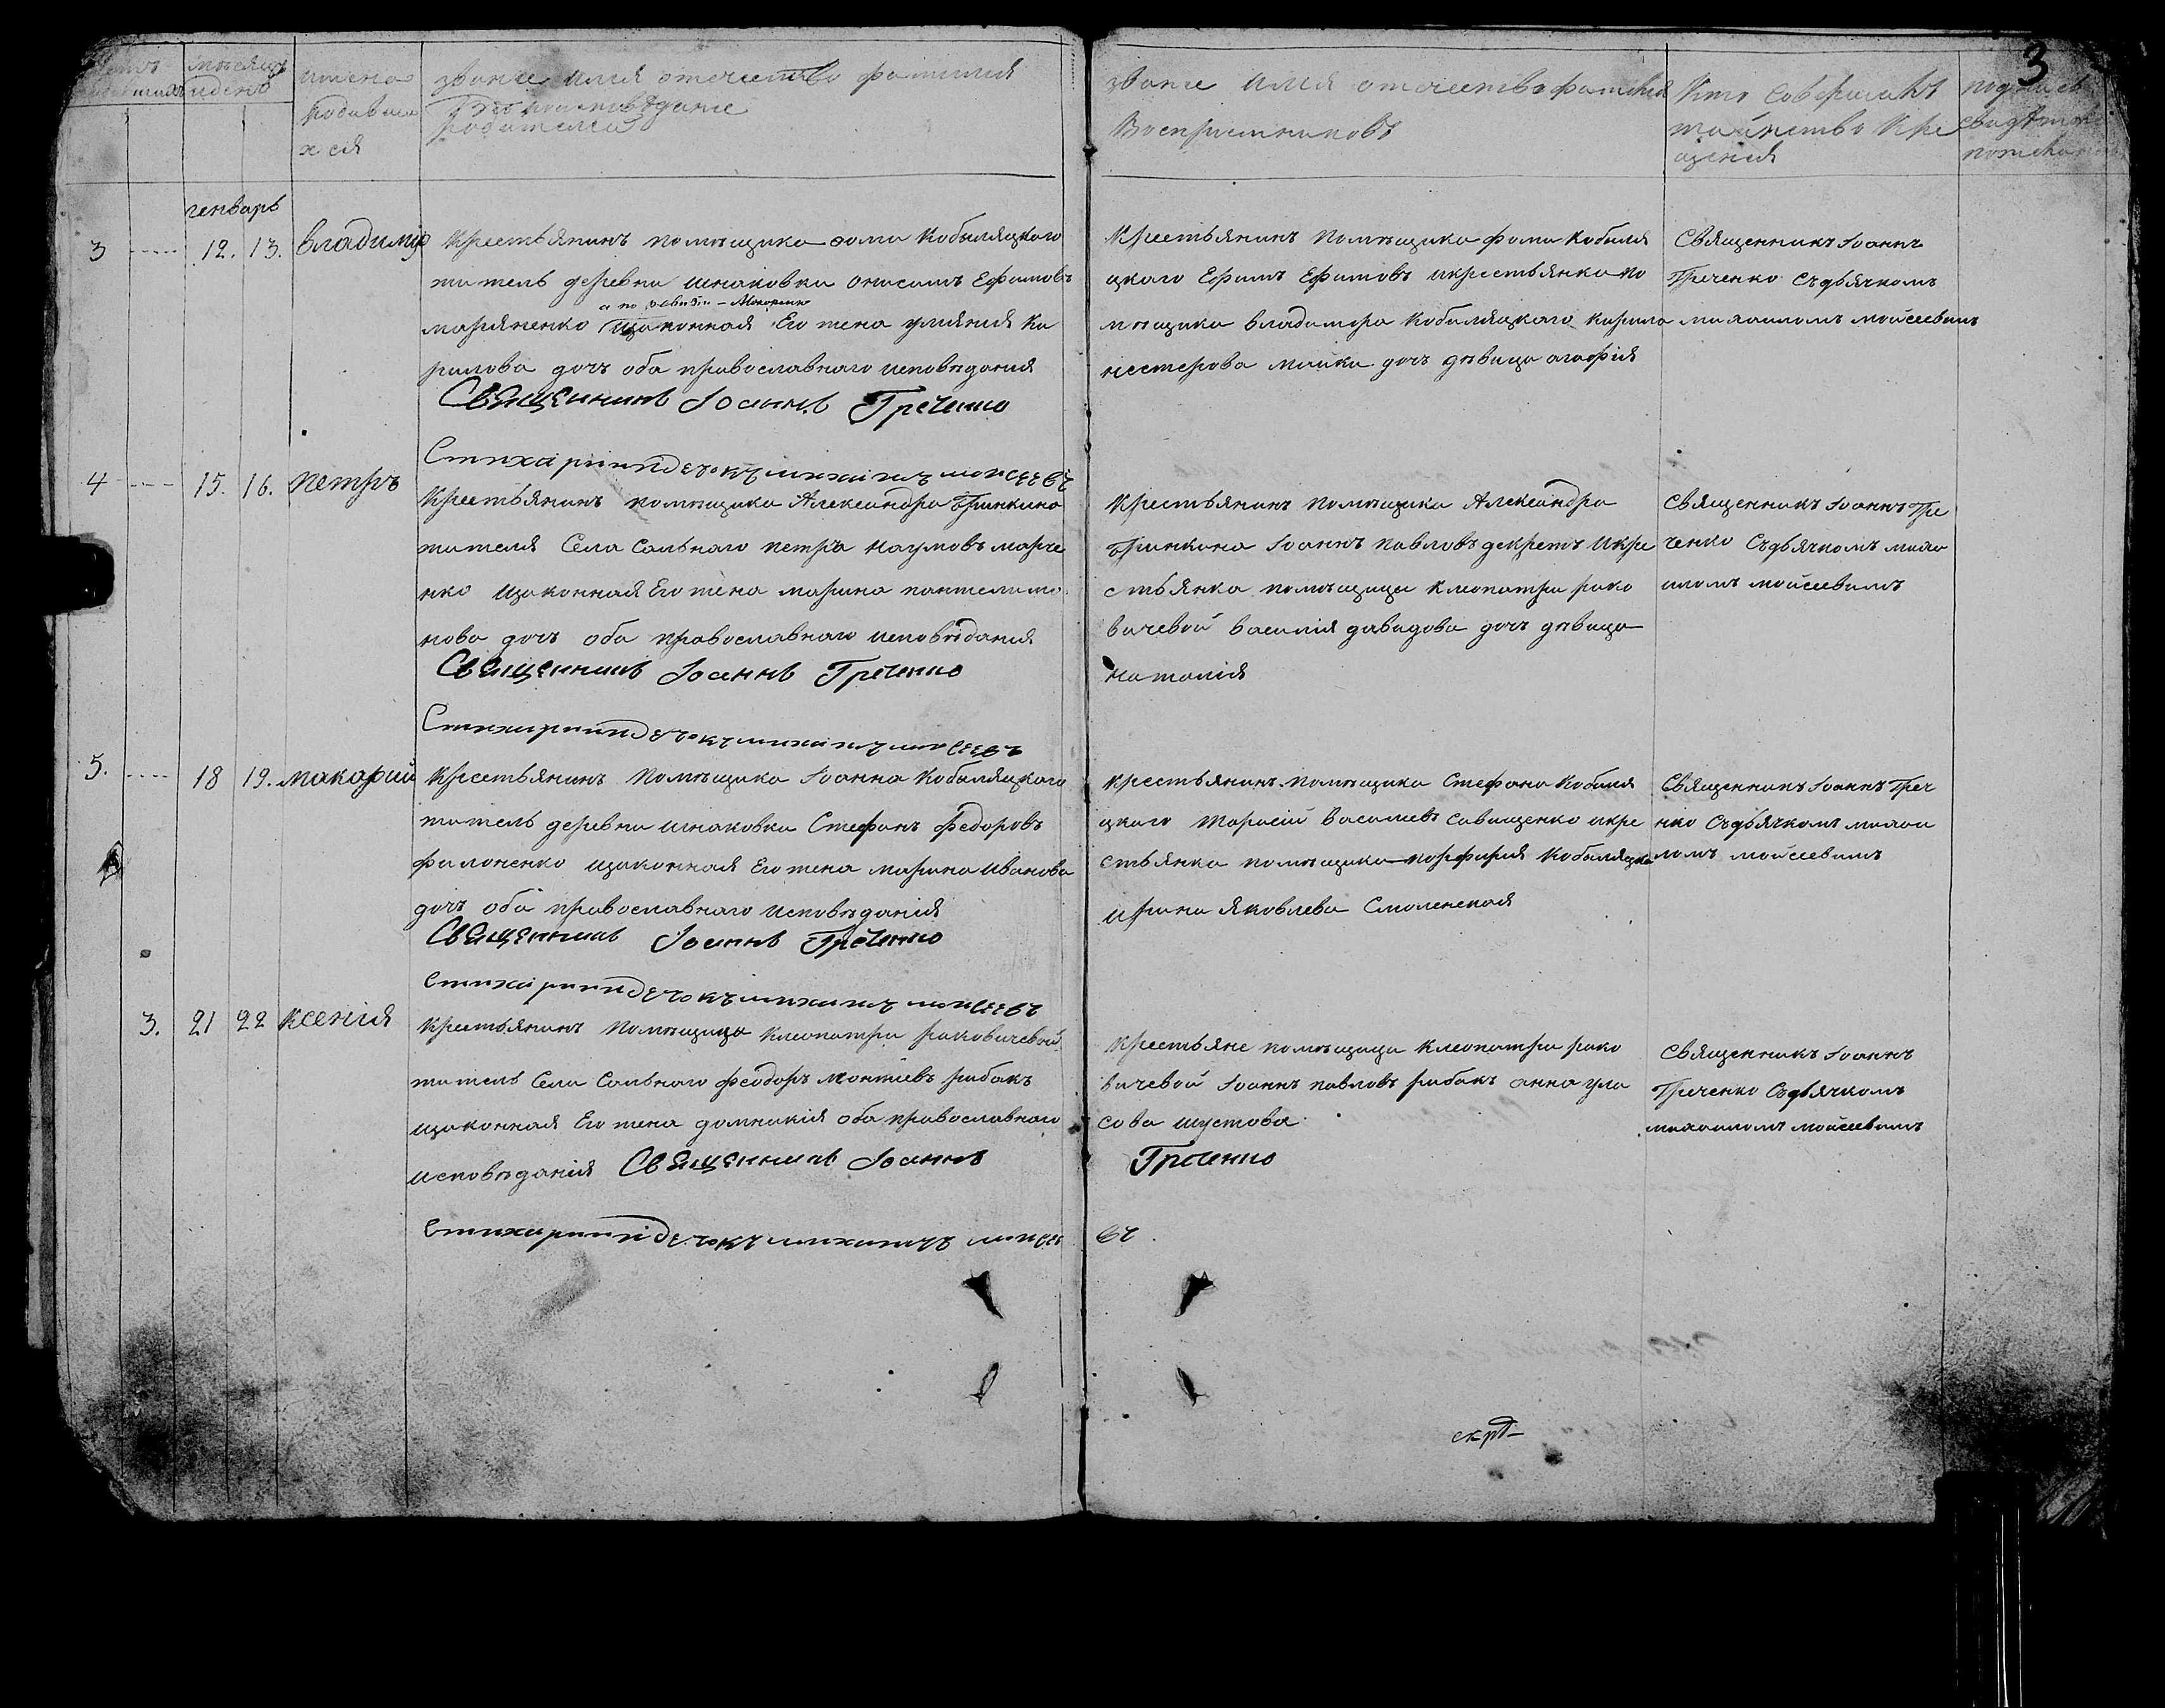 3
мѣсяцъ
имена
званіе имя отечество фамилія
и день
родивши
вѣроисповѣданіе
родителей
хся
званіе имя отечество фамилія
воспріемниковъ
Кто совершалъ
таинство кре
щенія
генварь
3 12. 13. Владимиръ
крестьянинъ помѣщика Фоми Кобиляцкого
житель деревни Ишаковки Онисимъ Ефимовъ
а по ревизіи - Макаренко
маряненко изаконная Его жена улияния Ки
рилова дочъ оба православнаго исповѣданія
Священникъ Іоаннъ Греченко
Стихарнийдечокъ михаилъ моисеевъ
крестьянинъ помѣщика фоми Кобиля
цкаго Ефимъ Ефимовъ икрестьянка по
мѣщика владимера Кобиляцкаго Кирила
нестерова майка дочъ дѣвица агафія
Священникъ Іоаннъ
Греченко Съдьячкомъ
михаиломъ мойсеевимъ
4 15. 16. Петръ
Крестьянинъ помѣщика Александра Гринкина
жителя Села Сальнаго петръ Наумовъ марче
нко изаконная Его жена марина пантелимо
нова дочъ оба православнаго исповѣданія
Священникъ Іоаннъ Греченко
Стихарнийдечокъ михаилъ моисеевъ
Крестьянинъ помѣщика Александра
Гринкина Іоаннъ павловъ декретъ Икре
стьянка помѣщици клеопатри рако
вичевой василія давидова дочъ дѣвица
наталія
Священникъ Іоаннъ Гре
ченко Съдьячкомъ миха
иломъ мойсеевимъ
5. 18 19. макарий
Крестьянинъ помѣщика Іоанна Кобиляцкого
житель деревни Ишаковки Стефанъ Федоровъ
филоненко изаконная Его жена марина Иванова
дочъ оба православнаго исповѣданія
Священникъ Іоаннъ Греченко
Стихарнийдечокъ михаилъ моисеевъ
крестьянинъ помѣщика Стефана Кобиля
цкаго Тарасій Васильевъ савищенко икре
стьянка помѣщика порфирія Кобиляцка
ирина Яковлева Смоленская
Священникъ Іоаннъ Греч
нко Съдьячкомъ михаи
ломъ мойсеевимъ
3. 21 22 Ксенія
Крестьянинъ помѣщици клеопатри раковичевой
житель Села Сальнаго феодоръ рибакъ
изаконная Его жена домникія оба православнаго
исповѣданія Священникъ Іоаннъ
Греченко
Стихарнийдечокъ михаилъ моисее
въ
Крестьяне помѣщици клеопатри рако
вичевой Іоаннъ павловъ рибакъ анна ула
сова шустова
Священникъ Іоаннъ
Греченко Съдьячкомъ
михаиломъ мойсеевимъ